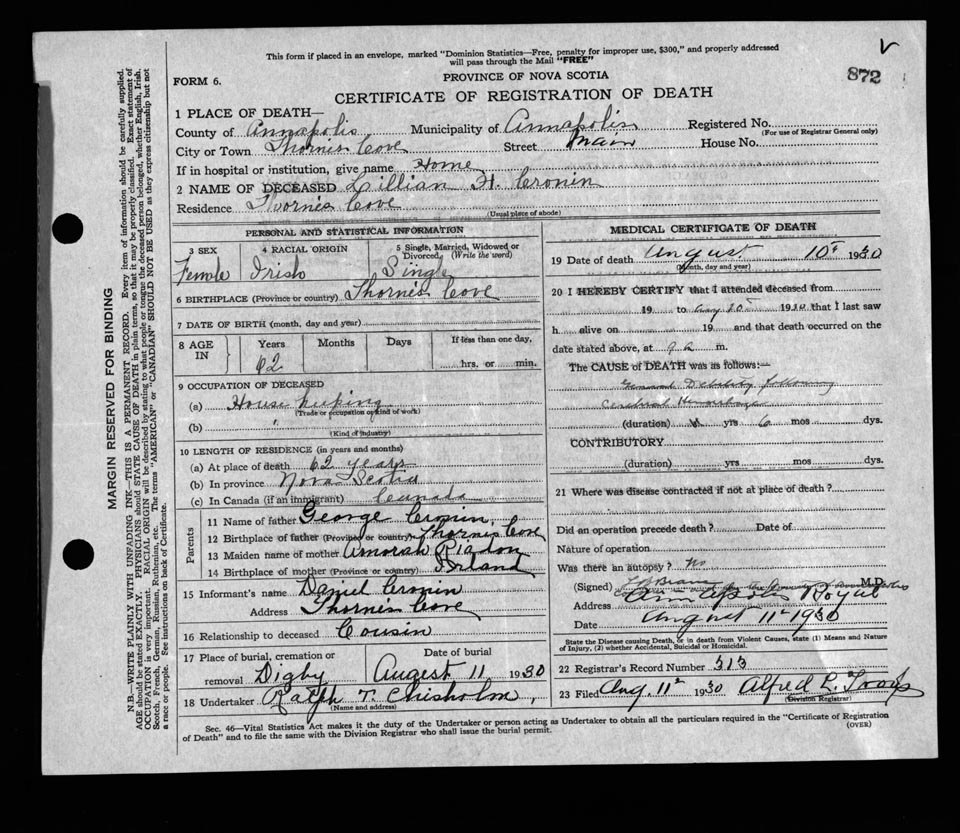 This form if placed in an envelope, marked "Dominion Statistics—Free, penalty for improper use, $300," and properly addressed
will pass through the Mail "FREE"
V
872
FORM 6.
PROVINCE OF NOVA SCOTIA
CERTIFICATE OF REGISTRATION OF DEATH
1 PLACE OF DEATH—
County of Annapolis Municipality of Annapolis Registered No.
(For use of Registrar General only)
City or Town Thornes Cove Street Main House No.
If in hospital or institution, give name Home
2 NAME OF DECEASED Lillian H. Cronin
Residence Thornes Cove
(Usual place of abode)
PERSONAL AND STATISTICAL INFORMATION
3 SEX
Female
4 RACIAL ORIGIN
Irish
5 Single, Married, Widowed or
Divorced (Write the word)
Single
6 BIRTHPLACE (Province or country) Thornes Cove
7 DATE OF BIRTH (month, day and year)
8 AGE IN
Years Months Days If less than one day,
62 hrs. or min.
9 OCCUPATION OF DECEASED
(a) House Keeping
(Trade or occupation or kind of work)
(b) "
(Kind of industry)
10 LENGTH OF RESIDENCE (in years and months)
(a) At place of death 62 years
(b) In province Nova Scotia
(c) In Canada (if an immigrant) Canada
Parents
11 Name of father George Cronin,
12 Birthplace of father (Province or country) Thornes Cove
13 Maiden name of mother Riadon
14 Birthplace of mother (Province or country) Irland
15 Informant's name Daniel Cronin
Address Thornes Cove
16 Relationship to deceased Cousin
17 Place of burial, cremation or removal Digby
Date of burial
August 11 1930
18 Undertaker Ralph T. Chisholm,
(Name and address)
MEDICAL CERTIFICATE OF DEATH
19 Date of death August 10th 1930
(Month, day and year)
20 I HEREBY CERTIFY that I attended deceased from
19 to Aug 10th 1930 that I last saw
h alive on 19 and that death occurred on
date stated above, at 9 a m.
The CAUSE of DEATH was as follows:—
General Debility following
Cerebral Hemorrhage
(duration) yrs 6 mos dys.
CONTRIBUTORY
(duration) yrs mos dys.
21 Where was disease contracted if not at place of death?
Did an operation precede death? Date of
Nature of operation
Was there an autopsy? No
(Signed) M.D.
Address Annapolis Royal
Date August 11th 1930
State the Disease causing Death, or in death from Violent Causes, state (1) Means and Nature
of Injury, (2) whether Accidental, Suicidal or Homicidal.
22 Registrar's Record Number 313
23 Filed Aug. 11th 1930 Alfred L.
(Division Registrar)
Sec. 46—Vital Statistics Act makes it the duty of the Undertaker or person acting as Undertaker to obtain all the particulars required in the "Certificate of Registration
of Death" and to file the same with the Division Registrar who shall issue the burial permit.
(OVER)
MARGIN RESERVED FOR BINDING
N.B.—WRITE PLAINLY WITH UNFADING INK—THIS IS A PERMANENT RECORD. Every item of information should be carefully supplied.
AGE should be stated EXACTLY. PHYSICIANS should STATE CAUSE OF DEATH in plain terms, so that it may be properly classified. Exact statement of
OCCUPATION is very important. RACIAL ORIGIN will be described by stating to what people or tongue the deceased person belonged, whether English, Irish,
Scotch, French, German, Russian, Ruthenian, etc. The terms "AMERICAN" or "CANADIAN" SHOULD NOT BE USED as they express citizenship but not
a race or people. See instructions on back of Certificate.